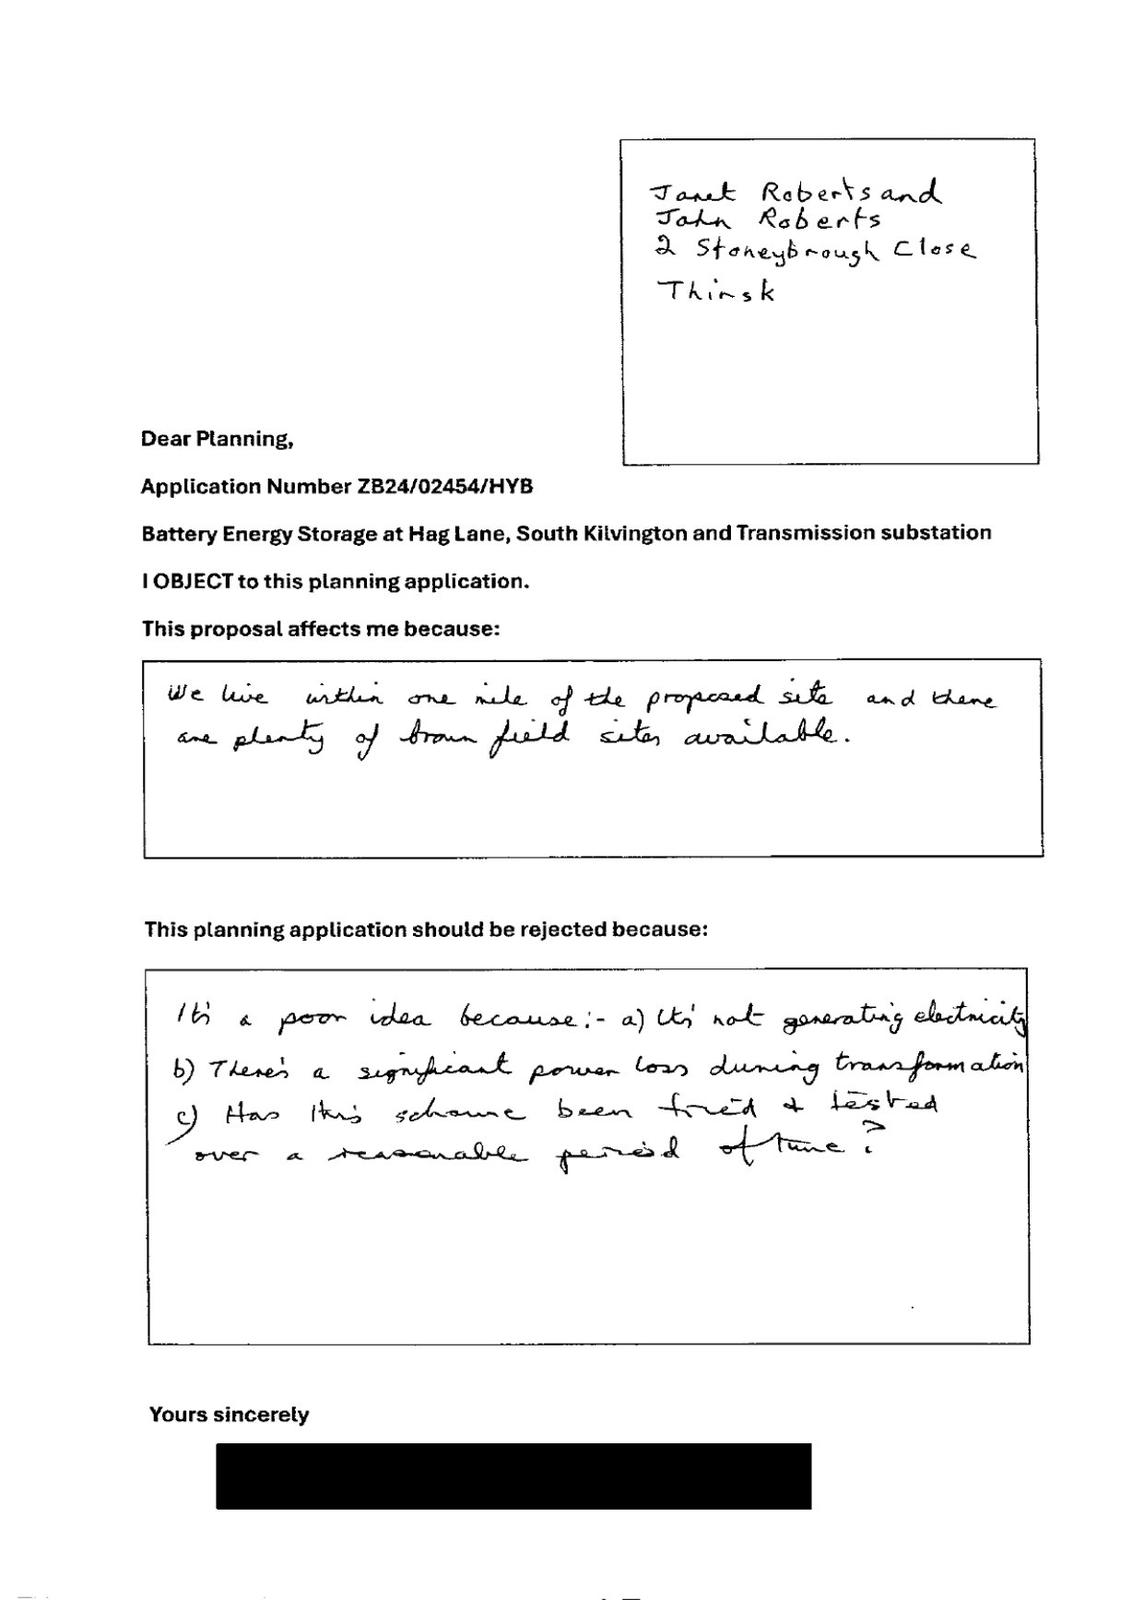 Janet Roberts and
John Roberts
2 Stoneybrough Close
Thirsk
Dear Planning,
Application Number ZB24/02454/HYB
Battery Energy Storage at Hag Lane, South Kilvington and Transmission substation
I OBJECT to this planning application.
This proposal affects me because:
We live within one mile of the proposed site and there
are plenty of brown field sites available.
This planning application should be rejected because:
It's a poor idea because:- a) It's not generating electricity
b) There's a significant power loss during transformation
c) Has this scheme been tried & tested
over a reasonable period of time?
Yours sincerely